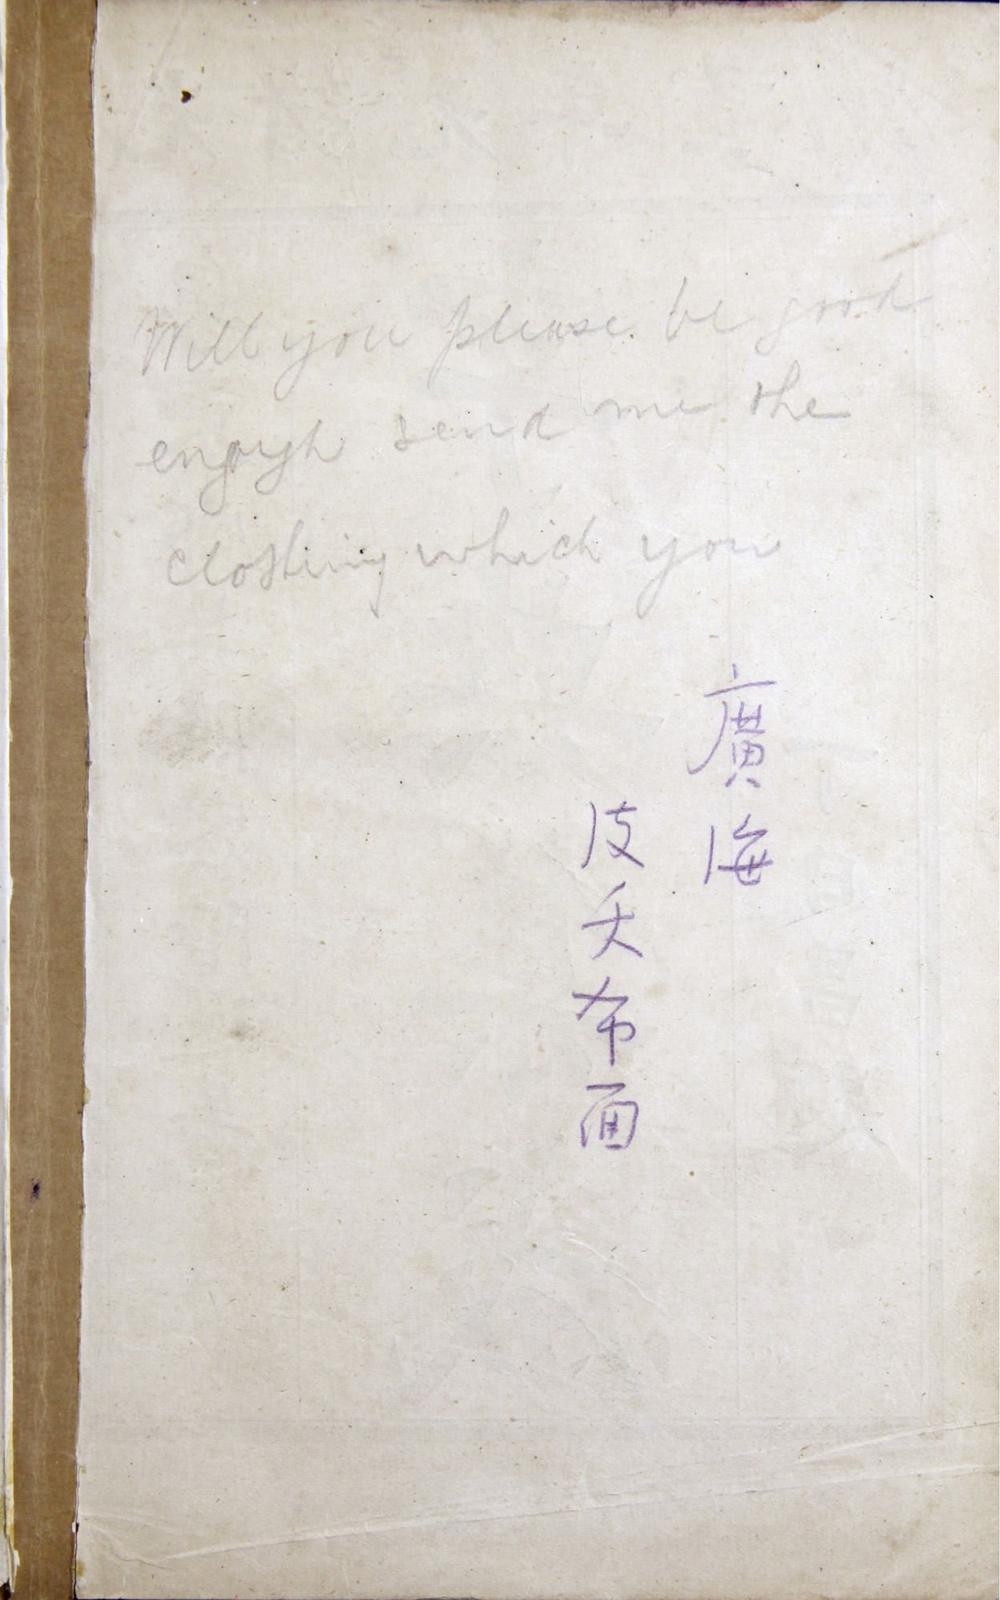 Will you please be good
enough send me the
clothing which you
廣海
皮夭布面